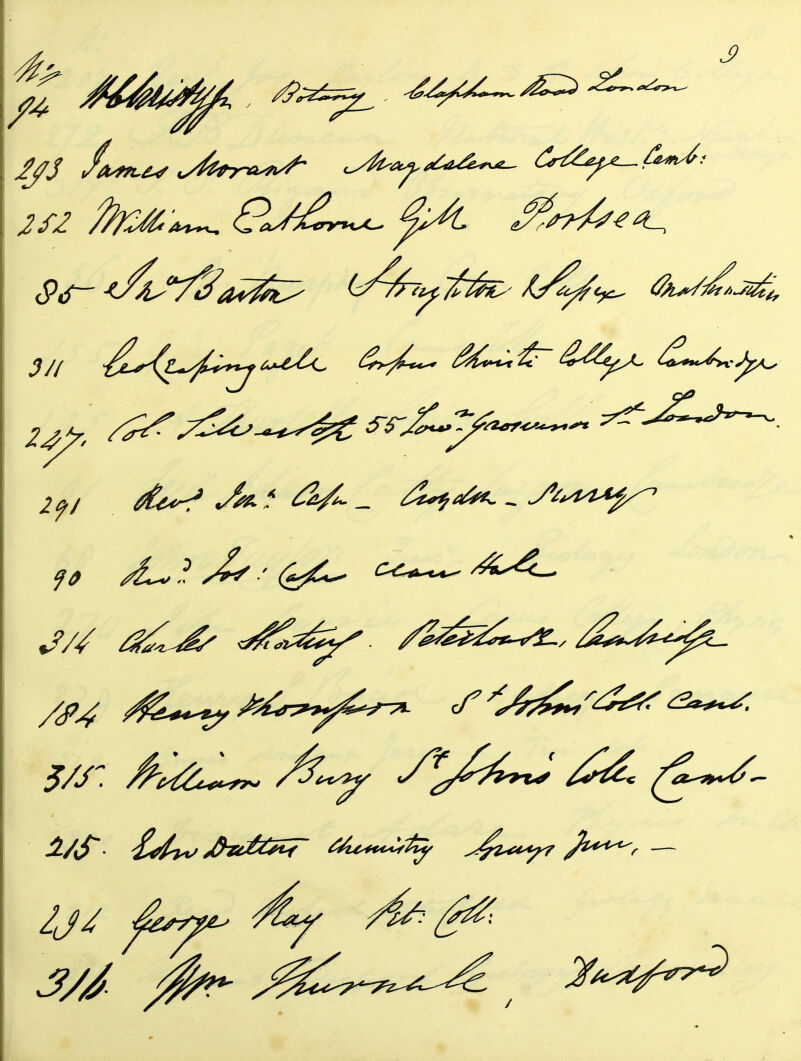 9
No
94 W Christy Jr, Botany. Clapham Road London
293 James Morant Magdalene College Camb:
252 William Eathorne Gill Portsea
85 Jno Barton Stoughton Sussex Mathematics
311 Geo Leapingwell Corpus Christi College Cambridge
247. Col. Silvertop 55 Lowr Grosvenor St London.
291 Revd Jona. Cape - Croydon - Surrey
90 Revd. Jos: Cape Clare Hall
314 Charles Shorting. Peterhouse, Cambridge
184 Henry Thompson St John's Coll. Camb.
315. William Bury St John's Coll. Camb-
215. Edw Chemistry Grays Inn, -
294 George Ray Pet: Coll:
316. Wm Thurnall, Duxford